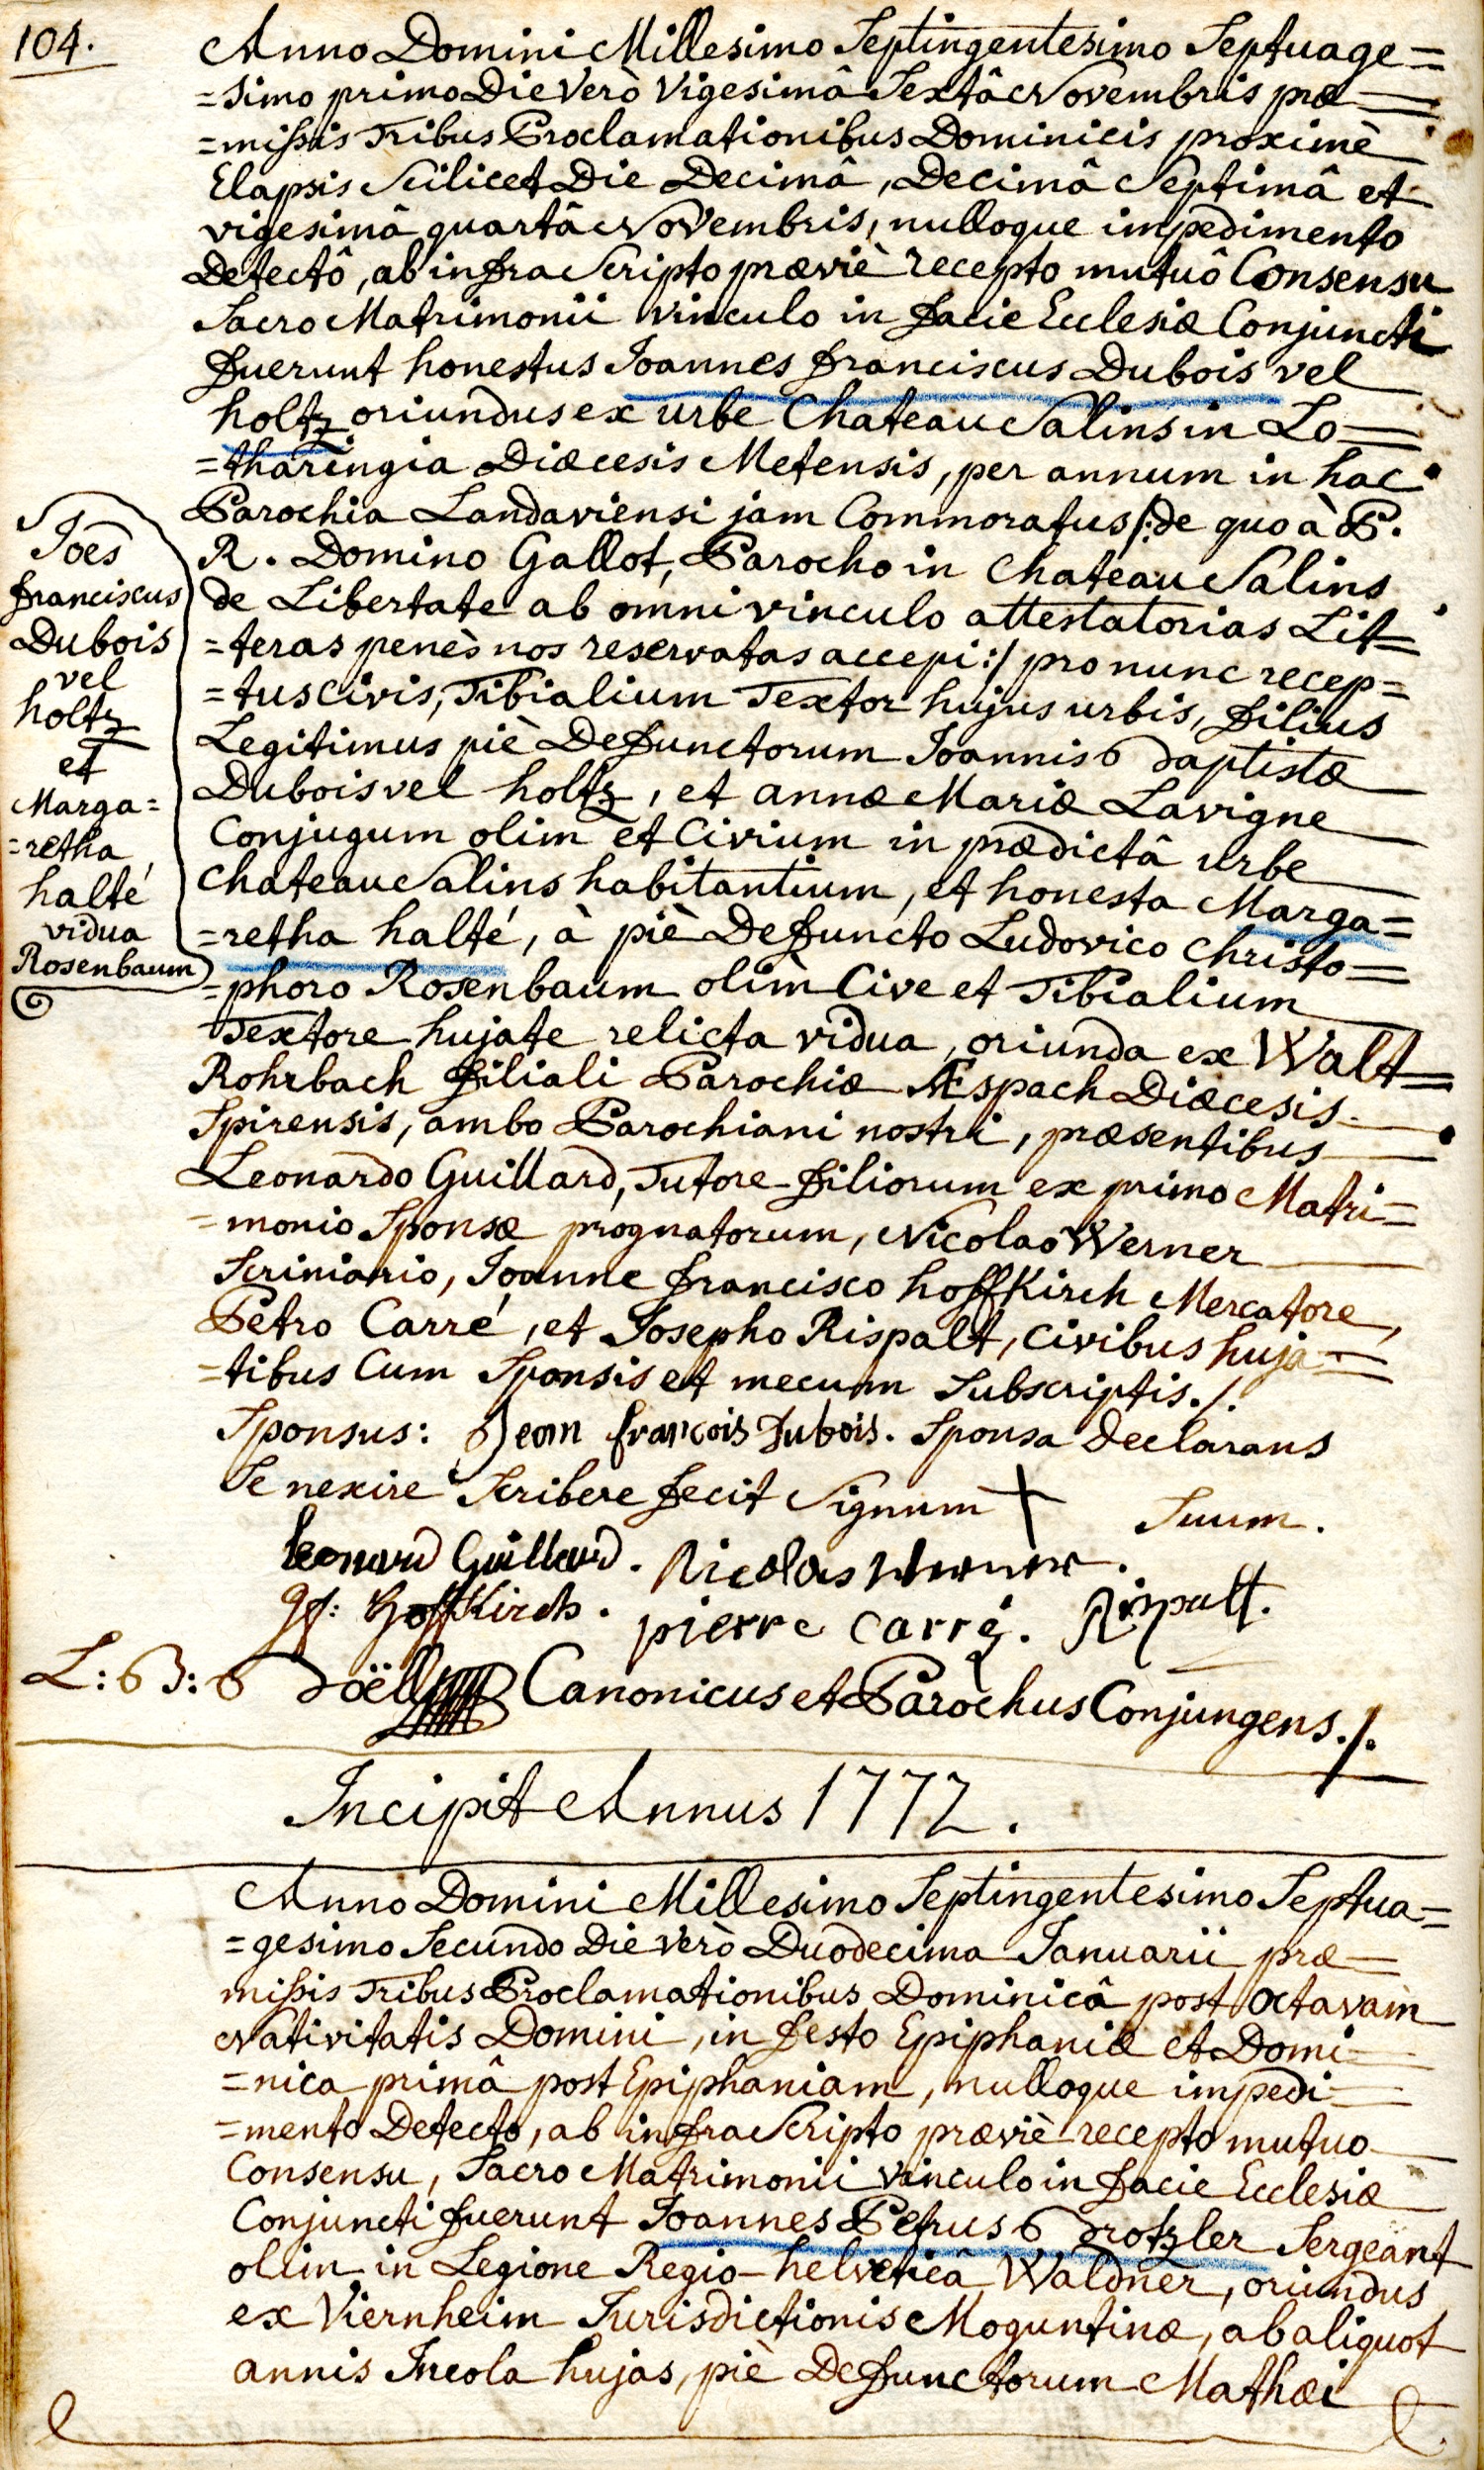 104.
Anno Domini Millesimo Septingentesimo Septuage=
=simo primo Die Verò Vigesimâ Sextâ Novembris præ=
=missis Tribus Proclamationibus Dominicis proximè
Elapsis Scilicet Die Decimâ, Decimâ Septimâ et
vigesimâ quartâ Novembris, nulloque impedimento
Detectô, ab infra Scripto præviè recepto mutuô Consensu
Sacro Matrimonii vinculo in facie Ecclesiæ Conjuncti
fuerunt honestus Joannes franciscus Dubois vel
holtz oriundus ex urbe Chateau Salins in Lo=
=tharingia Diœcesis Metensis, per annum in hac
Parochia Landaviensi jam Commoratus /: de quo à P.
R. Domino Gallot, Parocho in Chateau Salins
de Libertate ab omni vinculo attestatorias Lit=
=teras penès nos reservatas accepi :/ pro nunc recep=
=tus Civis, Tibialium Textor hujus urbis, filius
Legitimus piè Defunctorum Joannis Baptistæ
Dubois vel holtz, et annæ Mariæ Lavigne
Conjugum olim et Civium in prædictâ urbe
Chateau Salins habitantium, et honesta Marga=
=retha halté, à piè Defuncto Ludovico Christo=
=phoro Rosenbaum olim Cive et Tibialium
Textore hujate relicta vidua, oriunda ex Walt=
Rohrbach filiali Parochiæ Æspach Diœcesis
Spirensis, ambo Parochiani nostri, præsentibus
Leonardo Guillard, Tutore filiorum ex primo Matri=
=monio Sponsæ prognatorum, Nicolao Werner
Scriniario, Joanne francisco hoffKirch Mercatore,
Petro Carré, et Josepho Rispalt, Civibus huja=
=tibus Cum Sponsis et mecum Subscriptis./.
Sponsus: Jean francois Dubois. Sponsa Declarans
Se nexire Scribere fecit Signum + Suum.
Leonard Guillard. Nicolas Werner.
Jf: HoffKirch. pierre carré. Rispalt.
L: B: Boëll Canonicus et Parochus Conjungens./.
Joes
franciscus
Dubois
vel
holtz
et
Marga=
=retha
halté
vidua
Rosenbaum
Incipit Annus 1772.
Anno Domini Millesimo Septingentesimo Septua=
=gesimo Secundo Die verò Duodecima Januarii præ=
missis Tribus Proclamationibus Dominicâ post octavam
Nativitatis Domini, in festo Epiphaniæ et Domi=
=nica primâ post Epiphaniam, nulloque impedi=
=mento Detecto, ab infra Scripto præviè recepto mutuo
Consensu, Sacro Matrimonii vinculo in facie Ecclesiæ
Conjuncti fuerunt Joannes Petrus Brotzler Sergeant
ollin in Legione Regio-helveticâ Waldner, oriundus
ex Viernheim Jurisdictionis Moguntinæ, ab aliquot
annis Incola hujas, piè Defunctorum Mathæi